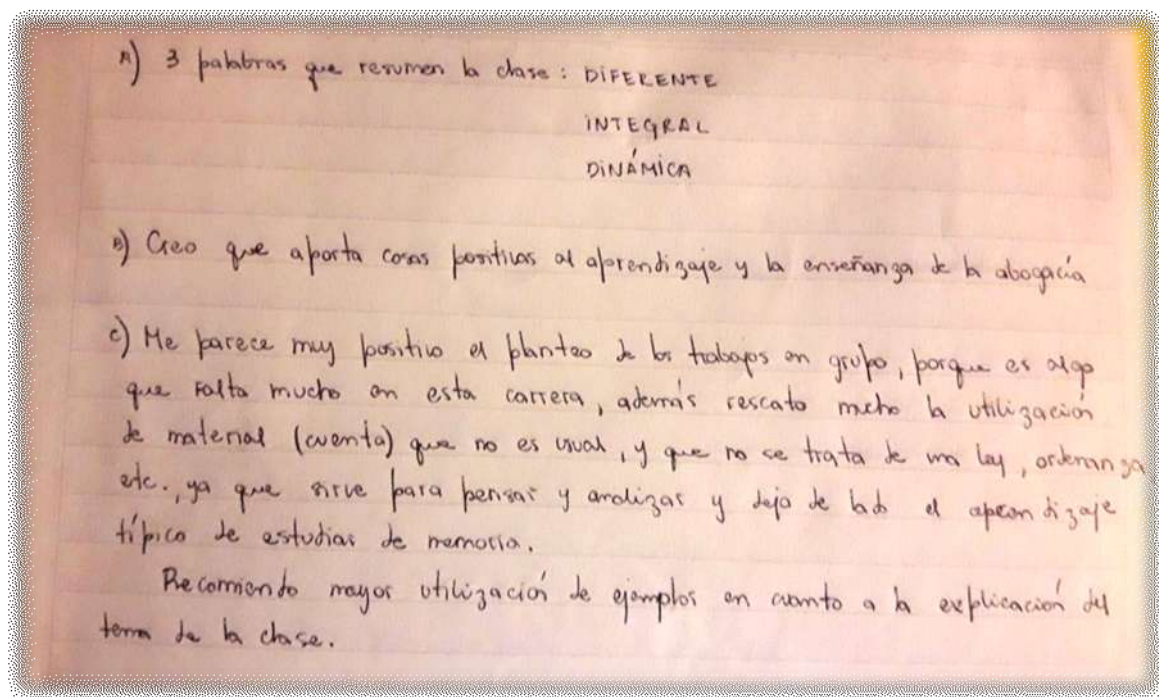 A) 3 palabras que resumen la clase: DIFERENTE
INTEGRAL
DINÁMICA
B) Creo que aporta cosas positivas al aprendizaje y la enseñanza de la abogacía
C) Me parece muy positivo el planteo de los trabajos en grupo, porque es algo
que falta mucho en esta carrera, además rescato mucho la utilización
de material (cuento) que no es usual, y que no se trata de una ley, ordenanza
etc., ya que sirve para pensar y analizar y deja de lado el aprendizaje
típico de estudiar de memoria.
Recomiendo mayor utilización de ejemplos en cuanto a la explicación del
tema de la clase.